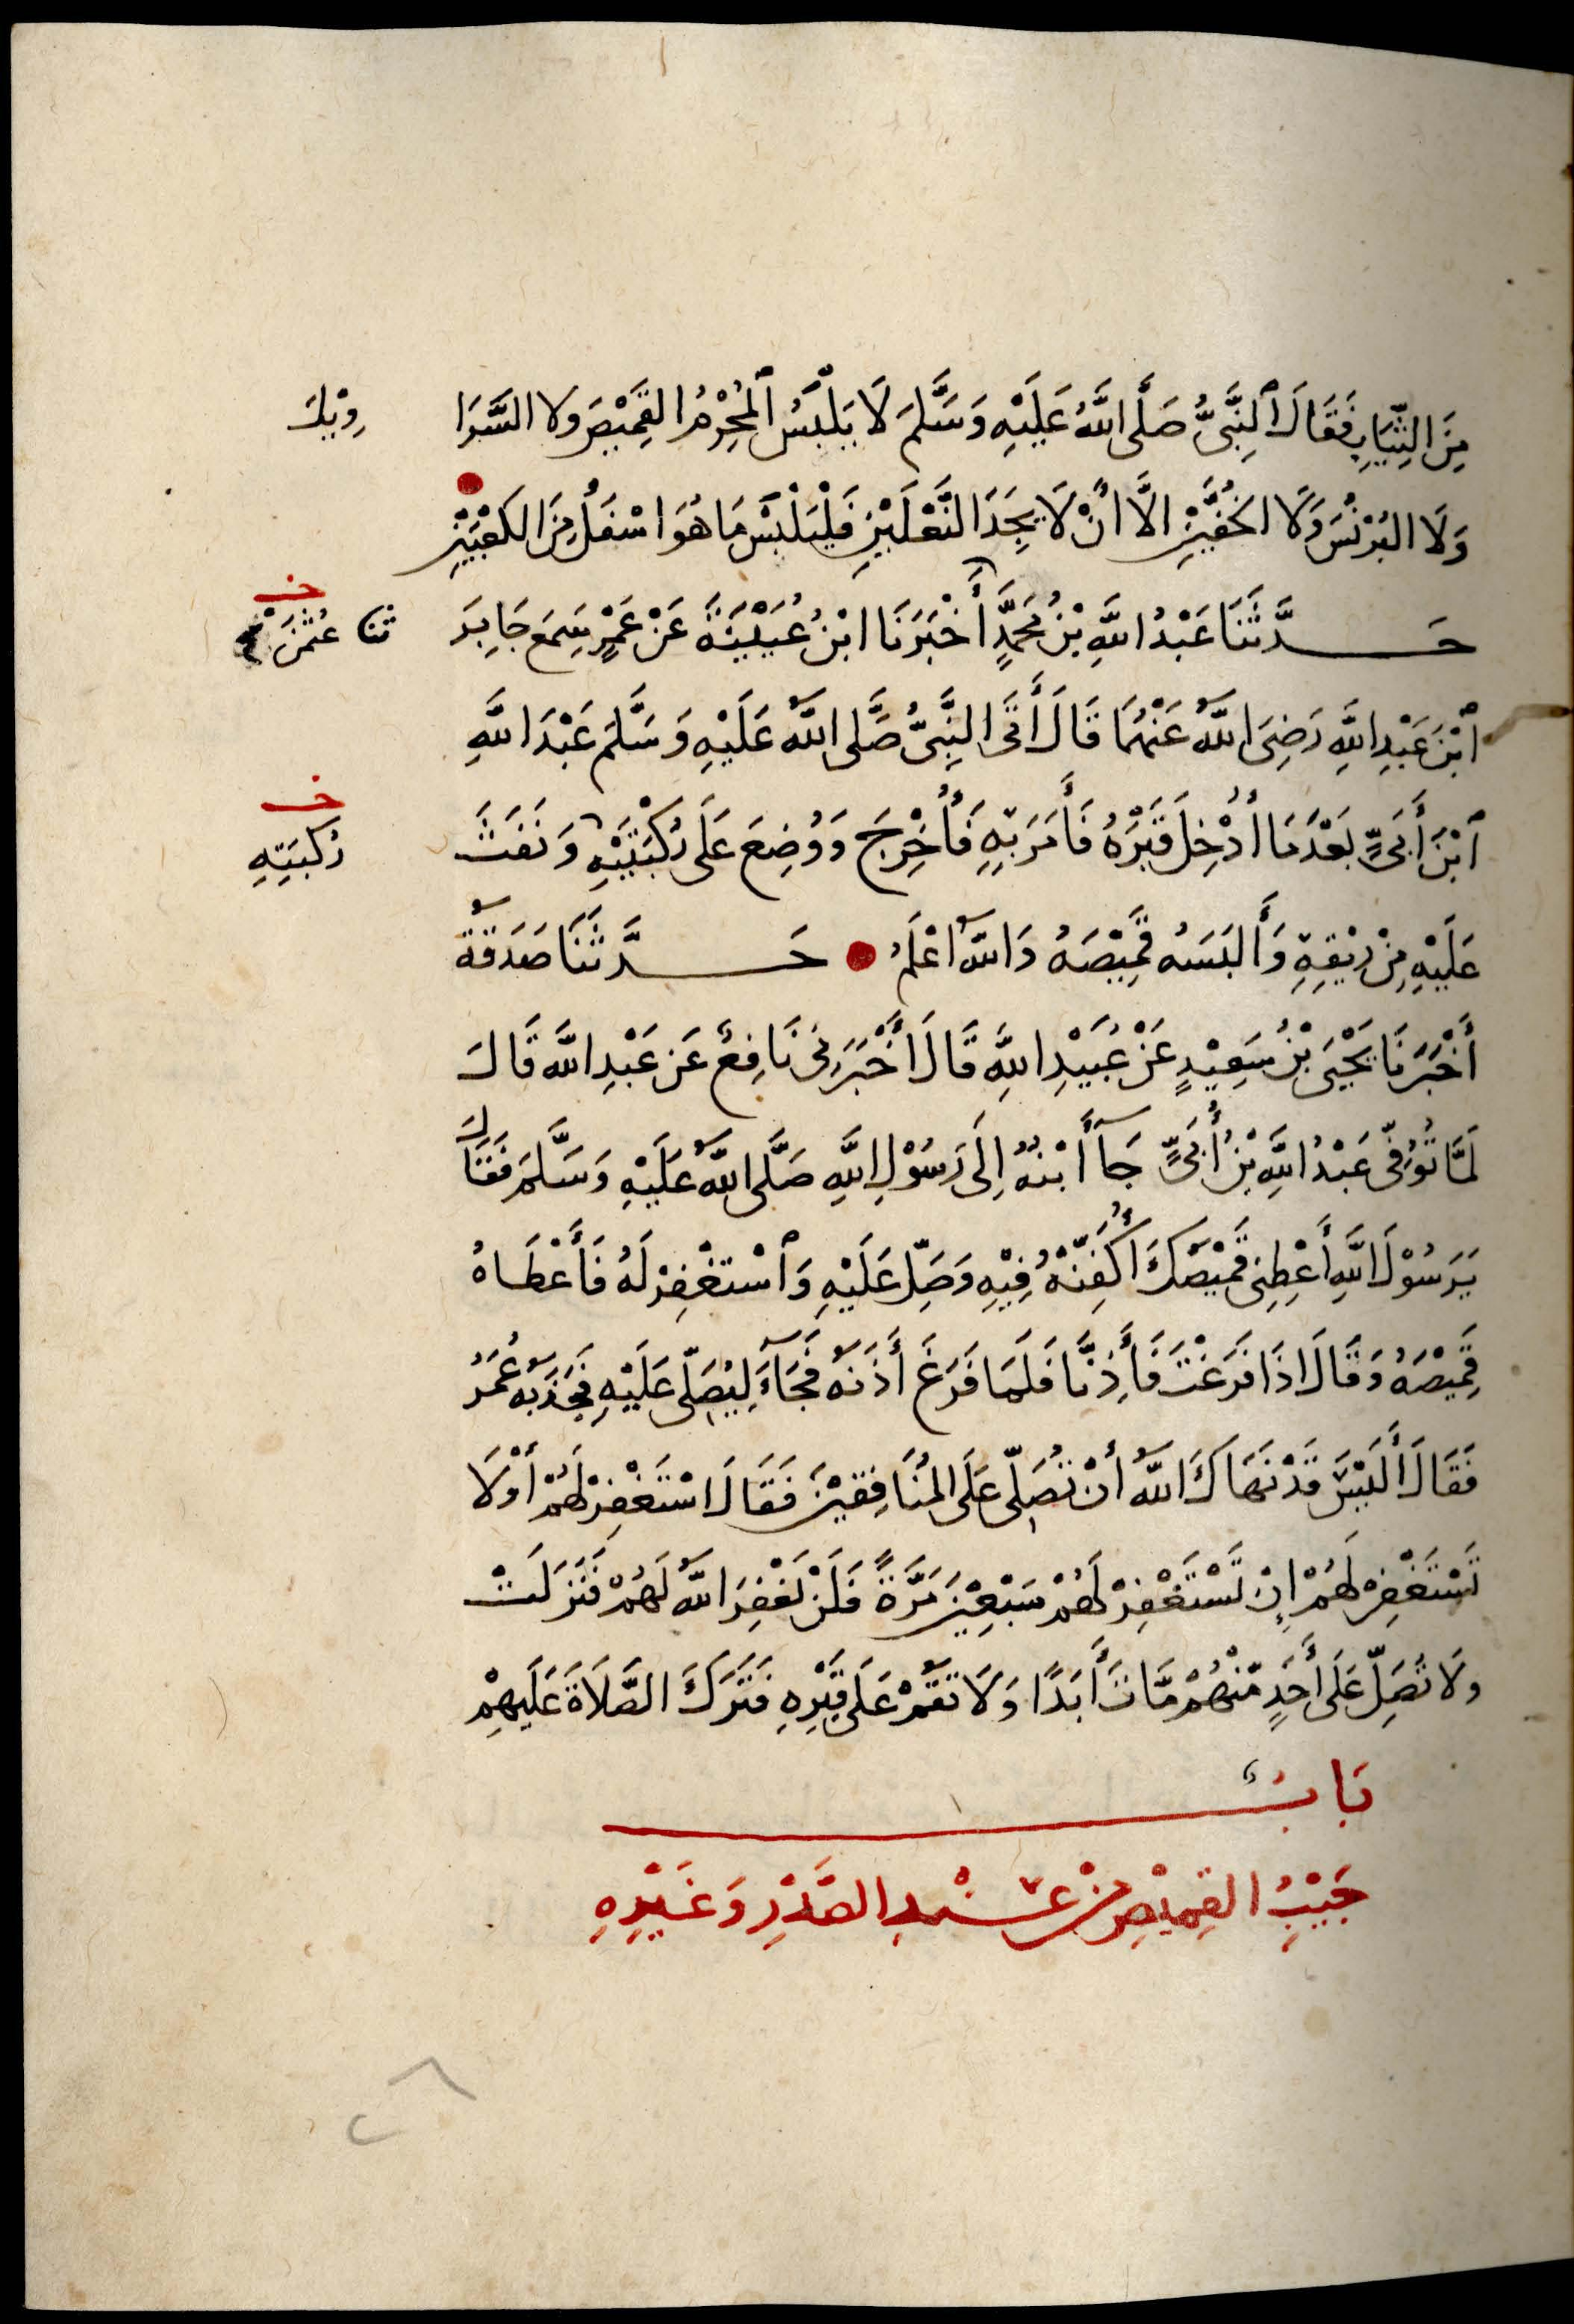 مِنَ الثِّيَابِ فَقَالَ ٱلنَّبِىُّ صَلَّى اللَّهُ عَلَيْهِ وَسَلَّمَ لَا يَلْبَسُ ٱلْمُحْرِمُ القَمِيْصَ وَلا السَّرَا وِيْلَ
وَلَا البُرْنُسَ وَلَا الخُفَّيْنِ الَّا أَنْ لَا يَجِدَ النَّعْلَيْنِ فَلْيَلْبَسْ مَا هُوَ اسْفَلُ مِنَ الكَعْبَيْنِ
حَدَّثَنَا عَبْدُ اللَّهِ بْنُ مُحَمَّدٍ أَخْبَرَنَا ابْنُ عُيَيْنَةَ عَنْ عَمْرٍ سَمِعَ جَابِرَ
خ
ثنا عُثْمٰنَ
ٱبْنَ عَبْدِ اللَّهِ رَضِىَ اللَّهُ عَنْهُمَا قَالَ أَتَى النَّبِىُّ صَلَّى اللَّهُ عَلَيْهِ وَسَلَّمَ عَبْدَ اللَّهِ
ٱبْنَ أُبَىٍّ بَعْدَ مَا أُدْخِلَ قَبْرَهُ فَأَمَرَ بِهِ فَأُخْرِجَ وَوُضِعَ عَلَى رُكْبَتَيْهِ وَنَفَثَ
خ
رُكبَتِهِ
عَلَيْهِ مِنْ رِيْقِهِ وَأَلبَسَهُ قَمِيْصَهُ وَاللَّهُ اعْلَمُ حَدَّثَنَا صَدَقَةُ
أَخْبَرَنَا يَحْيَى بْنُ سَعِيْدٍ عَنْ عُبَيْدِ اللَّهِ قَالَ أَخْبَرَنِى نَافِعٌ عَن عَبْدِ اللَّه قَالَ
لَمَّا تُوُفِّىَ عَبْدُ اللَّهِ بْنُ أُبَىٍّ جَآءَ ابْنُهُ إِلَى رَسُوْلِ اللَّهِ صَلَّى اللَّهُ عَلَيْهِ وَسَلَّمَ فَقَالَ
يَرَسُوْلَ اللَّهِ أَعْطِنِى قَمِيْصَكَ أُكَفِّنْهُ فِيْهِ وَصَلِّ عَلَيْهِ وَٱسْتَغْفِرْ لَهُ فَأَعْطَاهُ
قَمِيْصَهُ وَقَالَ اذَا فَرَغْتَ فَأَذِنَّا فَلَمَا فَرَغَ أَذَنَهُ فَجَآءَ لِيُصَلِّىَ عَلَيْهِ فَجَذَبَهُ عُمَرُ
فَقَالَ أَلَيْسَ قَدْ نَهَاكَ اللَّهُ أَنْ تُصَلِّىَ عَلَى المُنَافِقِيْنَ فَقَالَ اسْتَغْفِرْ لَهُمْ أَوْ لَا
تَسْتَغْفِرْ لَهُمْ إِنْ تَسْتَغْفِرْ لَهُمْ سَبْعِيْنَ مَرَّةً فَلَنْ يَغْفِرَ اللَّهُ لَهُمْ فَنَزَلَتْ
وَلَا تُصَلِّ عَلَى أَحَدٍ مِّنْهُمْ مَّاتَ أَبَدًا وَلَا تَقُمْ عَلَى قَبْرِهِ فَتَرَكَ الصَّلَاةَ عَلَيهِمْ
بَابُ
جَيْبِ القَمِيْصِ مِنْ عِنْدِ الصَّدْرِ وَغَيْرِهِ
٢٨